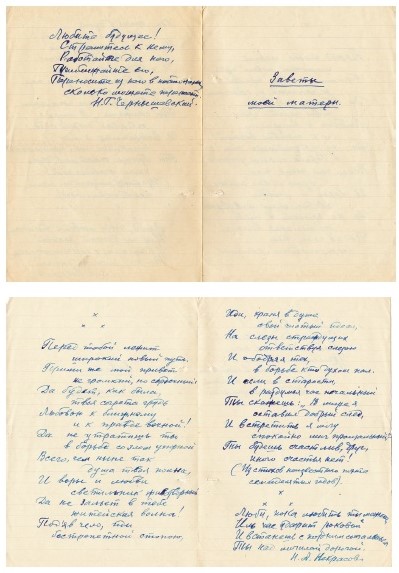 Любите будущее!
Стремитесь к нему,
Работайте для него,
Приближайте его,
Переносите из него в настоящее,
сколько можете перенести.
Н.Г. Чернышевский.
Заветы
моей матери.
х
х х
Перед тобой лежит
широкий новый путь.
Прими же мой привет
не громкий, но сердечный!
Да будет, как была,
твоя согрета грудь
Любовью к ближнему
и к правде вечной!
Да не утратишь ты
в борьбе со злом упорной
Всего, чем ныне так
душа твоя полна,
И веры и любви
светильник
Да не зальет в тебе
житейская волна!
Подъяв чело, иди
бестрепетной стопою,
Иди, храня в душе
свой чистый идеал,
На слезы страждущих
ответствуя слезою
И ободряя тех,
в борьбе кто духом пал.
И если в старости,
в раздумья час печальный
Ты скажешь: „В мире я
оставил добрый след,
И встретить я могу
спокойно миг прощальный"
Ты будешь счастлив, друг,
иного счастья нет!
(Из стихов неизвестного поэта
семидесятых годов).
х
х х
Люби, пока любить ты можешь,
Иль час ударит роковой
И станешь с поздним сожаленьем
Ты над могилой дорогой.
Н. А. Некрасов